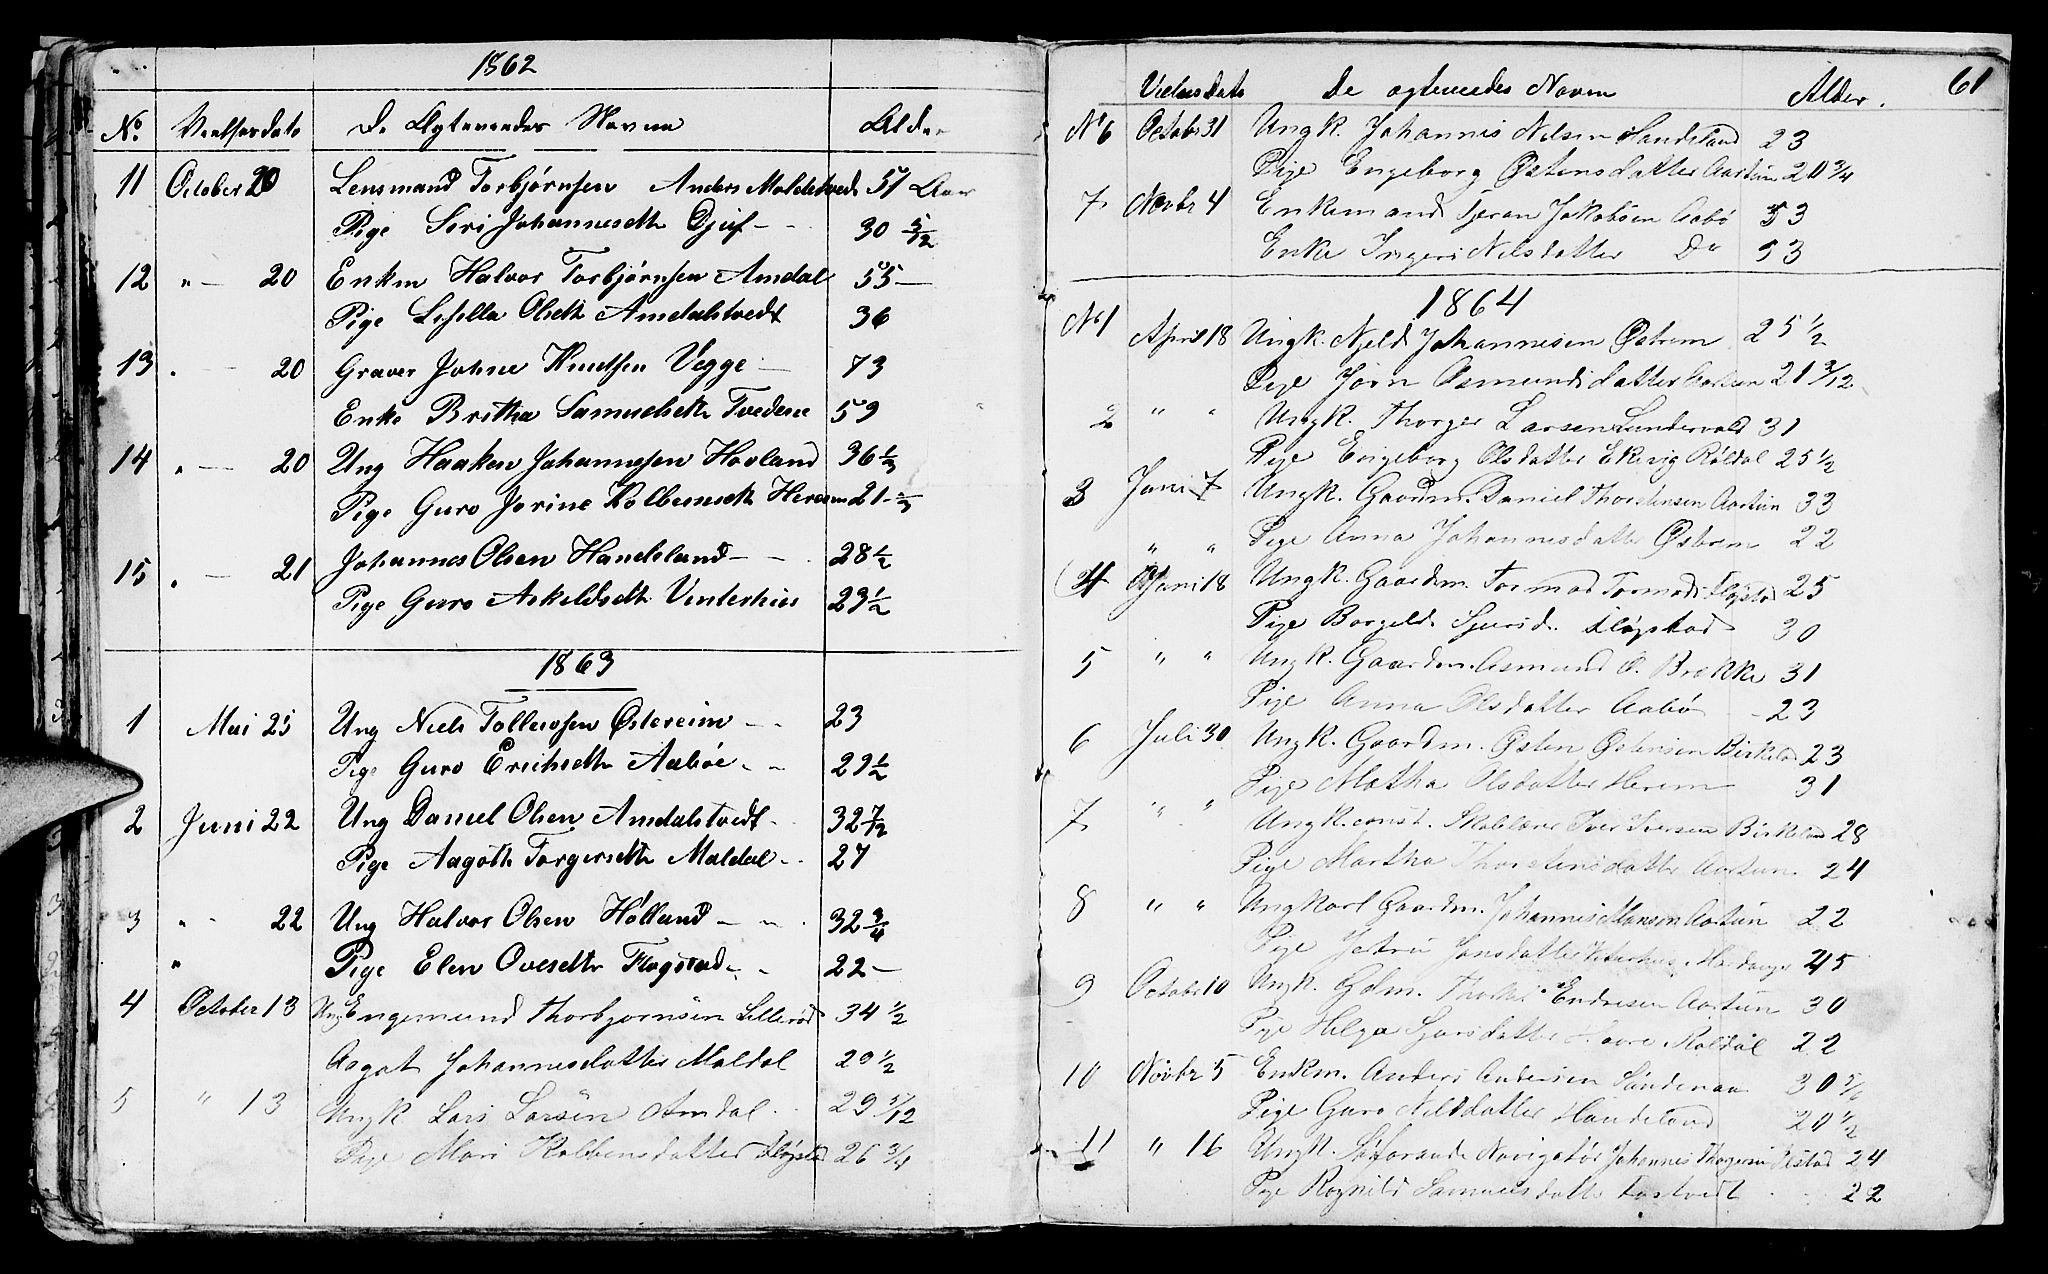 1862
No. Vielsesdato De Ægtevieedes Navne Alder
11 October 20 Lensmand Torbjørnsen Anders Maldetved 51 Aar
Pige Siri Johannesdtr Djuf 30 5/12
12 " — 20 Enkm Halvor Torbjørnsen Amdal 55 —
Pige Olsdtr Amdalstvedt 36
13 " — 20 Graver Johne Knudsen Vegge — 73
Enke Britha Samuelsdtr Tvedene 59
14 " — 20 Ung Haaken Johannesen Hovland 36 1/2
Pige Guro Jorine Kolbensdtr Hereim 21
15 " — 21 Johannes Olsen Handeland — 28 1/2
Pige Guro Askeldsdtr Vinterhus 23 1/2
1863
1 Mai 25 Ung Niels Tollevsen Østereim 23
Pige Guro Erichsdtr Aabøe 29 1/2
2 Juni 22 Ung Daniel Olsen Amdalstvedt 32 7/12
Pige Aagoth Torgersdtr Maldal 27
3 " 22 Ung Halvor Olsen Hølland 32 3/4
" Pige Elen Ovesdtr Fløgstad 22 —
4 October 13 Ung Engemund Thorbjørnsen 34 1/2
Aagot Johannesdatter Maldal 29 1/2
5 " 13 Ungk Lars Larsen Amdal 29 5/12
Pige Mari Kolbensdatter Fløgstad 26 3/4
61
Vielses Dato De egtevieedes Navne Alder.
No 6 Octobr 31 Ungk. Johannis Nilsen Handeland 23
Pige Engeborg Østensdatter Aartun 20 3/4
7 Novbr 4 Enkemand Tjeran Jakobsen Aabø 53
Enke Ingeri Nilsdatter Do 53
1864
No 1 April 18 Ungk. Njeld Johannesen Østrem 25 1/2
Pige Jørn Osmundsdatter Aartun 21 3/12
2 " " Ungk. Thorger Larsen Sundervold 31
Pige Engeborg Olsdatter Ekevig Røldal 25 1/2
3 Juni 7 Ungk. Gaardm. Daniel Thorstensen Aartun 33
" " Pige Anna Johannesdatter Østrem 22
4 Juni 18 Ungk. Gaardm. Tormod Tormods. Fløgstad 25
Pige Borgeld Sjursd. Fløgstad 30
5 " " Ungk. Gaardm. Osmund O. Brække 31
Pige Anna Olsdatter Aabø 23
6 Juli 30 Ungk. Gaardm. Østen Østensen Birkeland 23
Pige Martha Olsdatter Herem 31
7 " " Ungk. const. Skolelærer Iver Iversen Birkeland 28
Pige Martha Thorstensdatter Aartun 24
8 " " Ungkarl Gaardm. Johannis Monsen Aartun 22
Pige Jonsdatter Hardanger 45
9 Octobr 10 Ungk. Gdm. Endresen Aartun 30
Pige Helga Sjursdatter Havre Røldal 22
10 Novbr 5 Enkm. Anders Andersen Sandenaa 30 5/6
Pige Guro Nilsdatter Handeland 20 1/2
11 " 16 Ungk. Søfarende Navigatør Johannes Thorgersen 24
Pige Ragnild Samuelsdatter Tostvedt 22